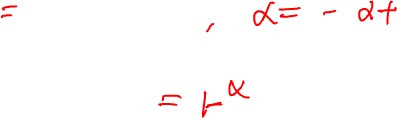 = , α = - αt
= r^α